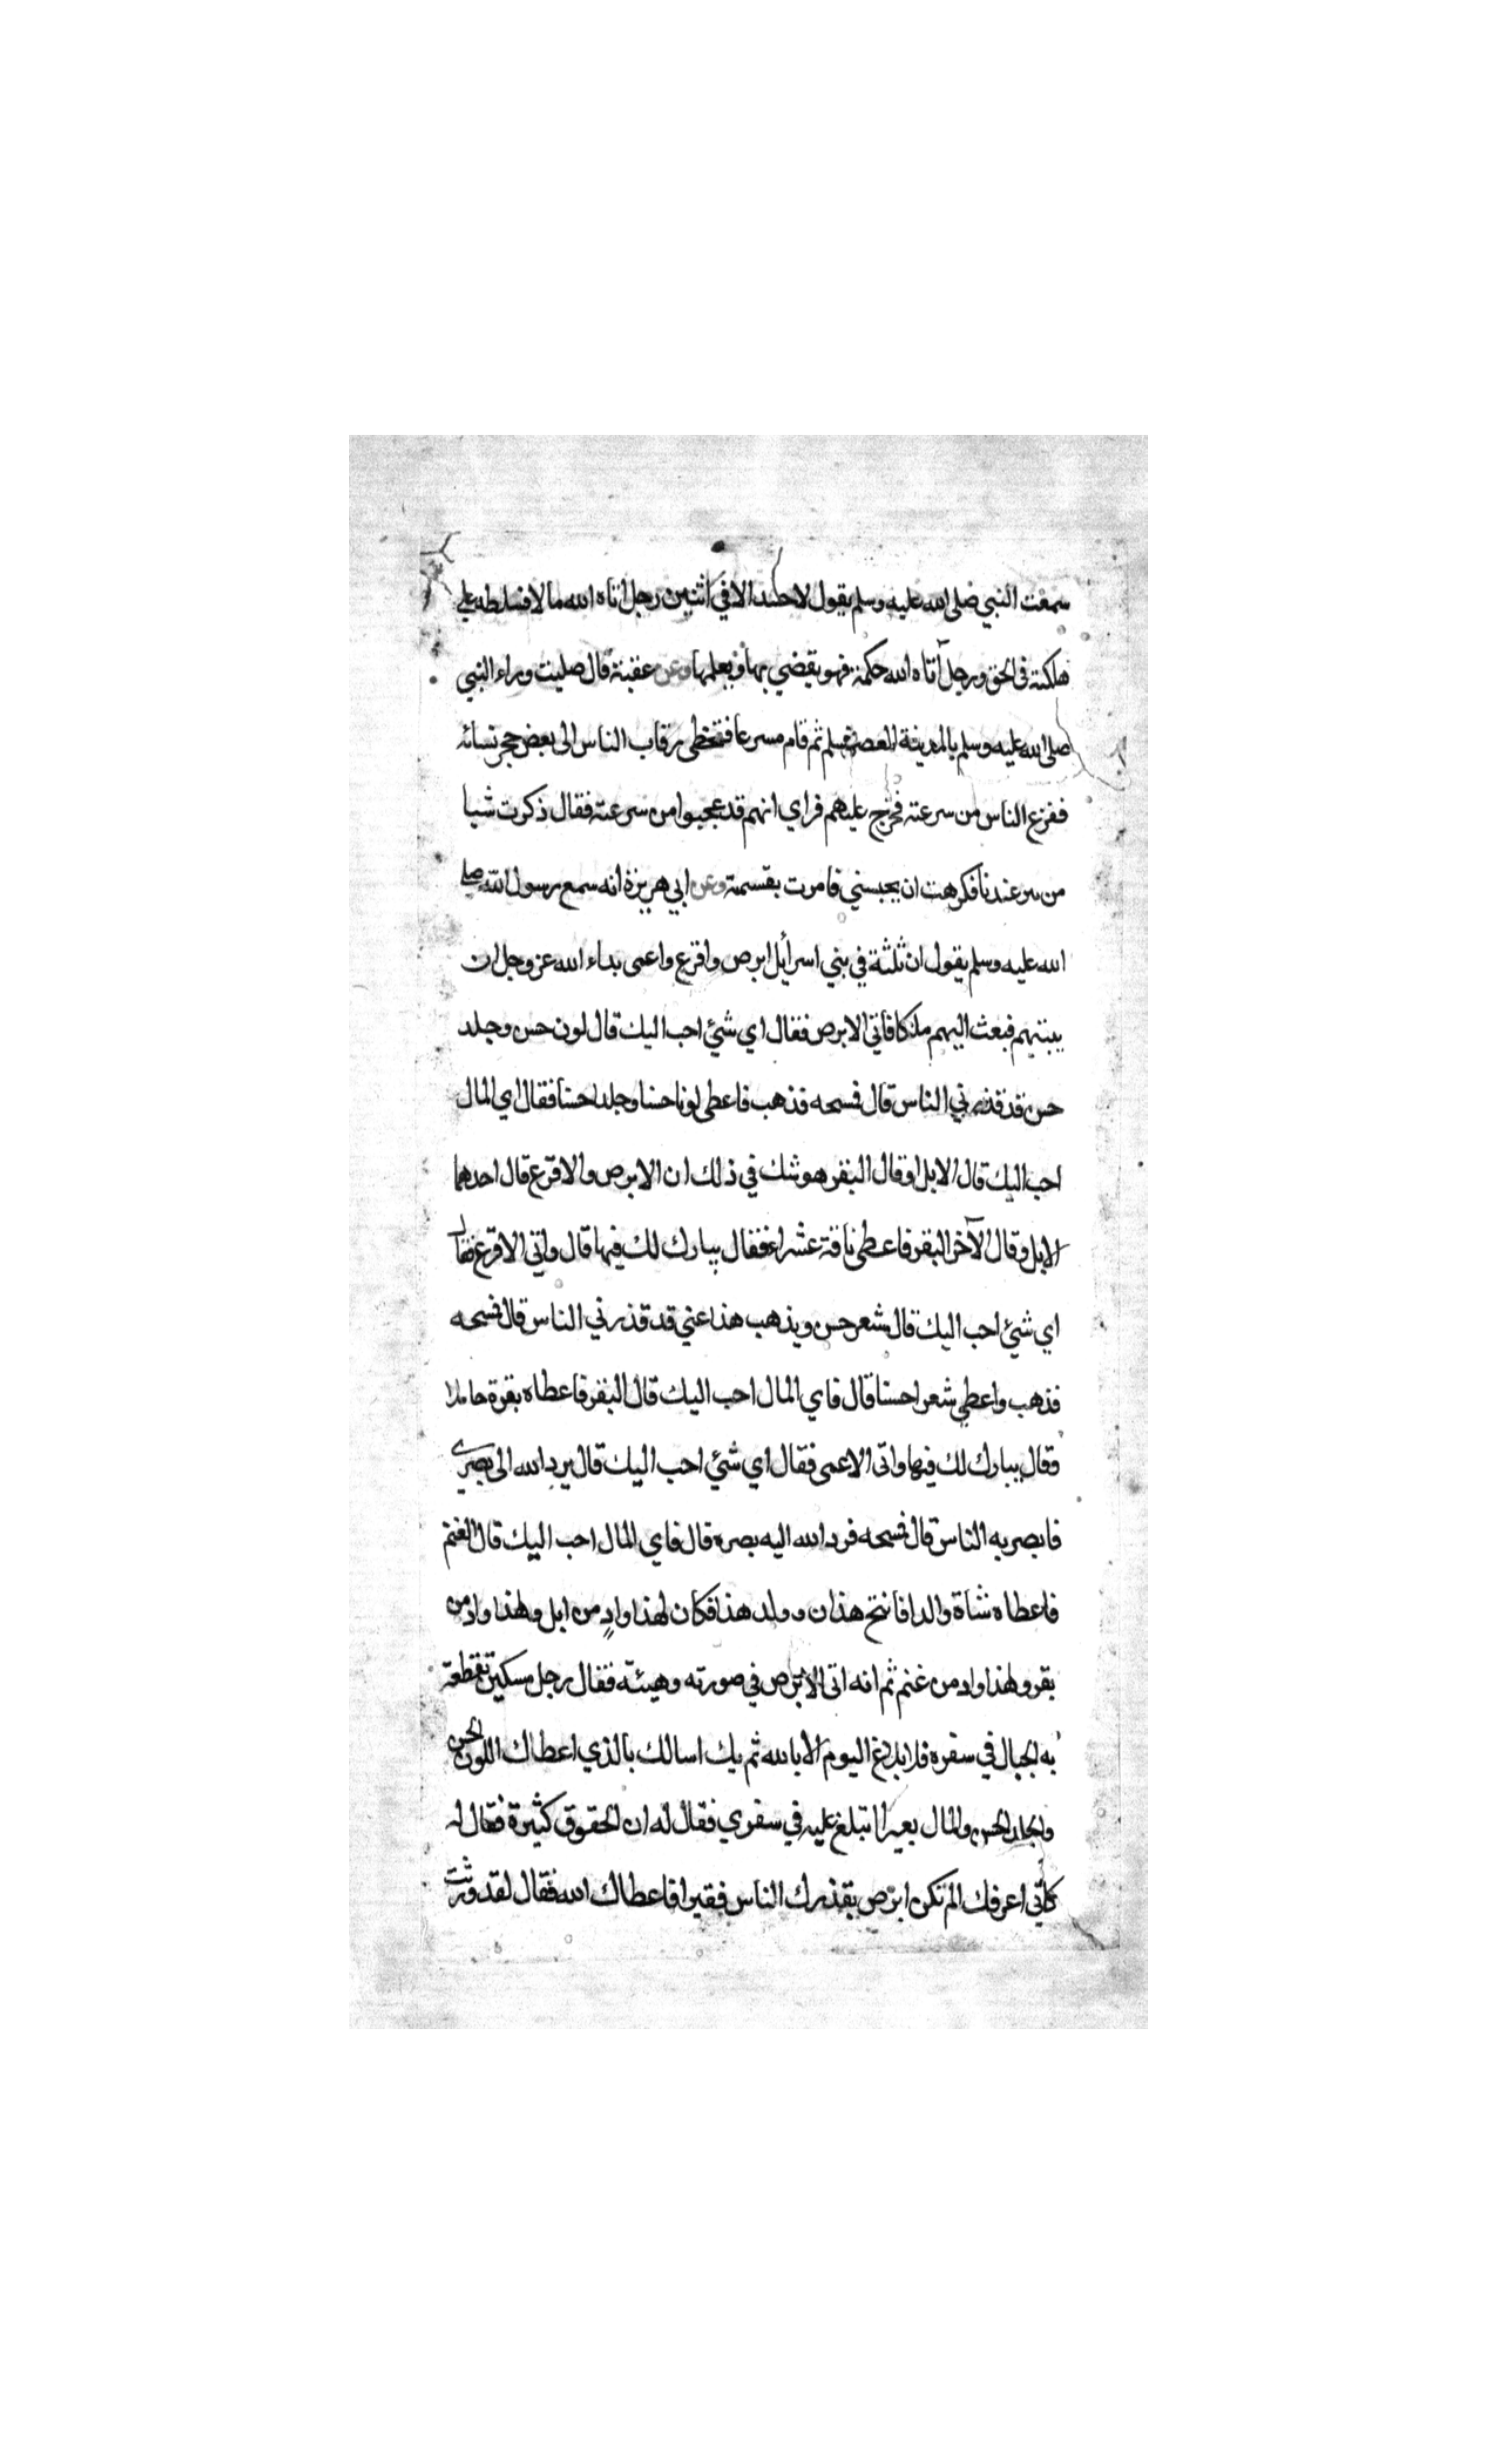 سمعت النبي صلى الله عليه وسلم يقول لا حسد الا في اثنين رجل اتاه الله مالا فسلطه على
هلكته في الحق ورجل آتاه الله حكمة فهو يقضي بها ويعلمها وعن عقبة قال صليت وراء النبي
صلى الله عليه وسلم بالمدينة العصر فسلم ثم قام مسرعا فتخطى رقاب الناس الى بعض حجر نسائه
ففزع الناس من سرعته فخرج عليهم فراي انهم قد عجبوا من سرعته فقال ذكرت شيا
من تبر عندنا فكرهت ان يحبسني فامرت بقسمته وعن ابي هريرة انه سمع رسول الله صلى
الله عليه وسلم يقول ان ثلثة في بني اسرأيل ابرص واقرع واعمى بداء الله عز وجل ان
يبتليهم فبعث اليهم ملكا فاتى الابرص فقال اي شئ احب اليك قال لون حسن وجلد
حسن قد قذرني الناس قال فمسحه فذهب فاعطى لونا حسنا وجلدا حسنا فقال اي المال
احب اليك قال الابل او قال البقر هو شك في ذلك ان الابرص والاقرع قال احدهما
الابل وقال الآخر البقر فاعطى ناقة عشراء فقال يبارك لك فيها قال واتى الاقرع فقال
اي شئ احب اليك قال شعر حسن ويذهب هذا عني قد قذرني الناس قال فمسحه
فذهب واعطي شعرا حسنا قال فاي المال احب اليك قال البقر فاعطاه بقرة حاملا
وقال يبارك لك فيها واتى الاعمى فقال اي شئ احب اليك قال يرد الله الى بصري
فابصر به الناس قال فمسحه فرد الله اليه بصره قال فاي المال احب اليك قال الغنم
فاعطاه شاة والدا فانتج هذان وولد هذا فكان لهذا وادٍ من ابل ولهذا واد من
بقر ولهذا واد من غنم ثم انه اتى الابرص في صورته وهيئته فقال رجل مسكين تقطعت
به الحبال في سفره فلا بلاغ اليوم الا بالله ثم بك اسالك بالذي اعطاك اللون الحسن
والجلد الحسن والمال بعيرا اتبلغ عليه في سفري فقال له ان الحقوق كثيرة فقال له
كأني اعرفك الم تكن ابرص يقذرك الناس فقيرا فاعطاك الله فقال لقد ورثت